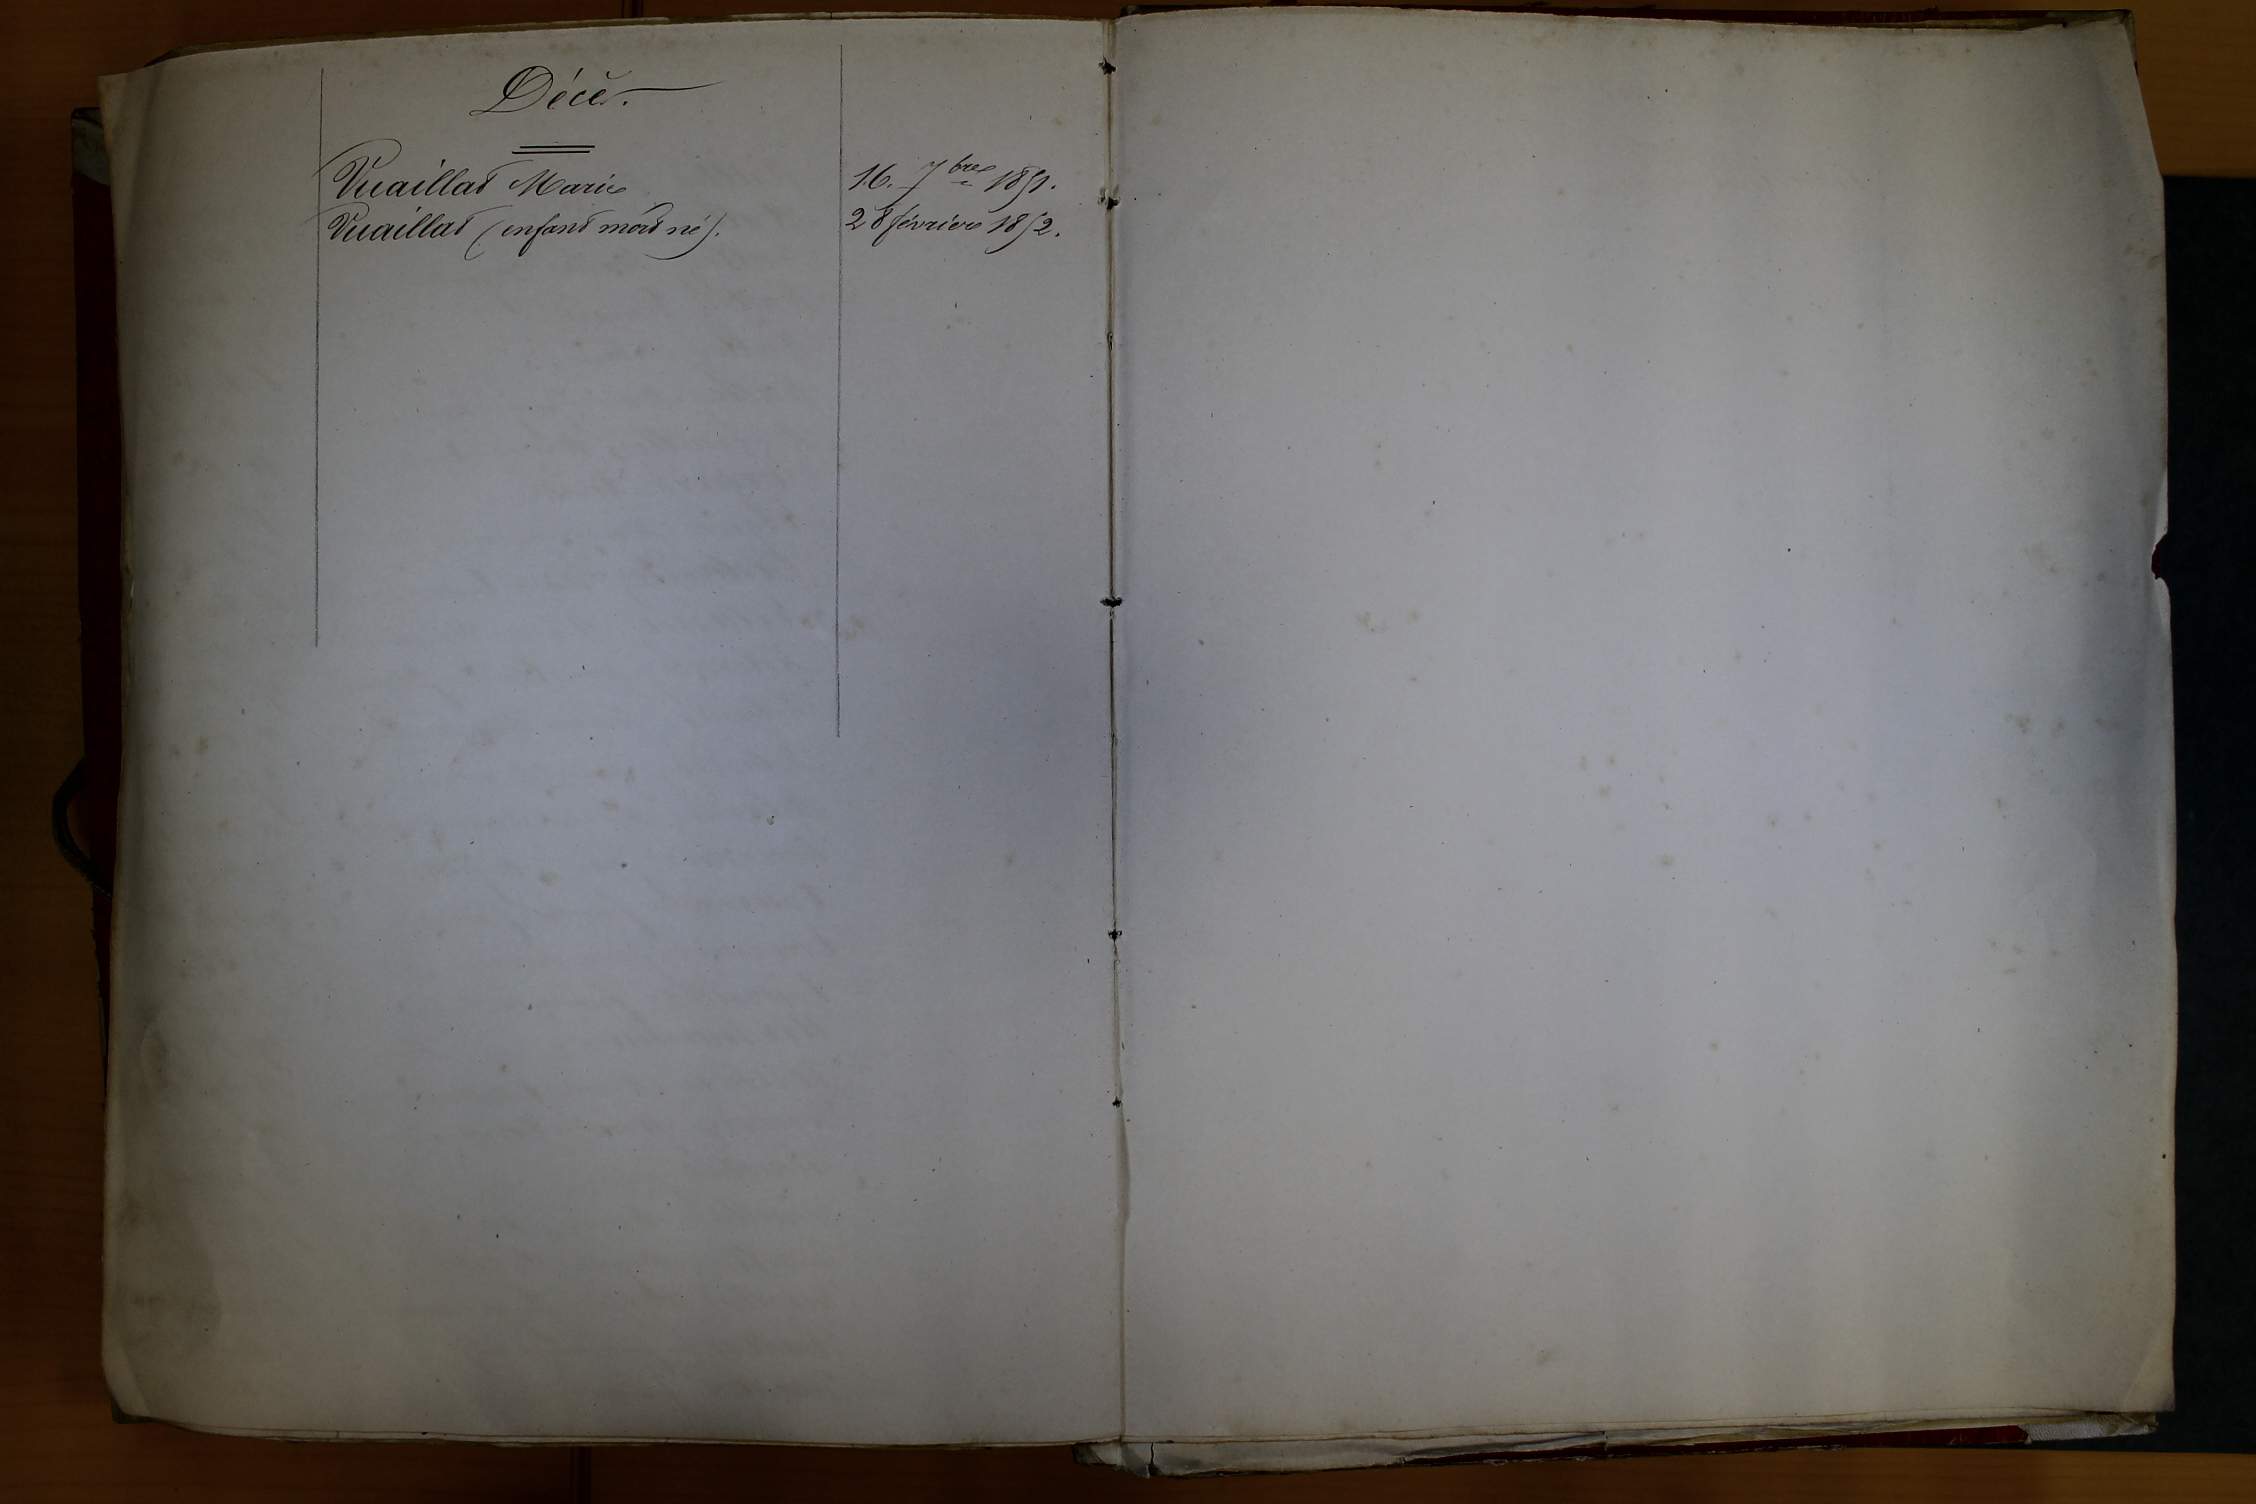 Décès.
Vuaillat Marie 16. 7bre 1851.
Vuaillat (enfant mort né). 28 février 1852.